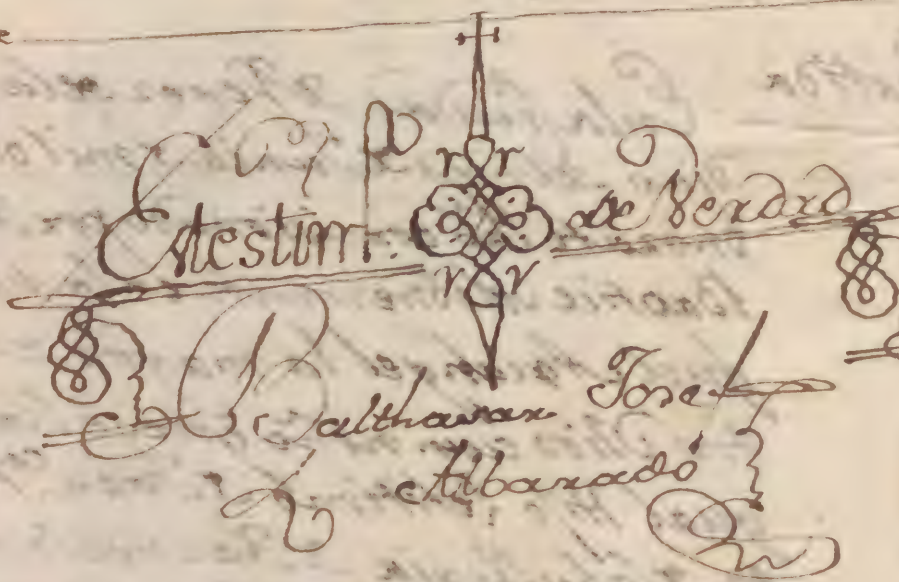 En testim^o de Verdad
Balthasar Josef
Albarado